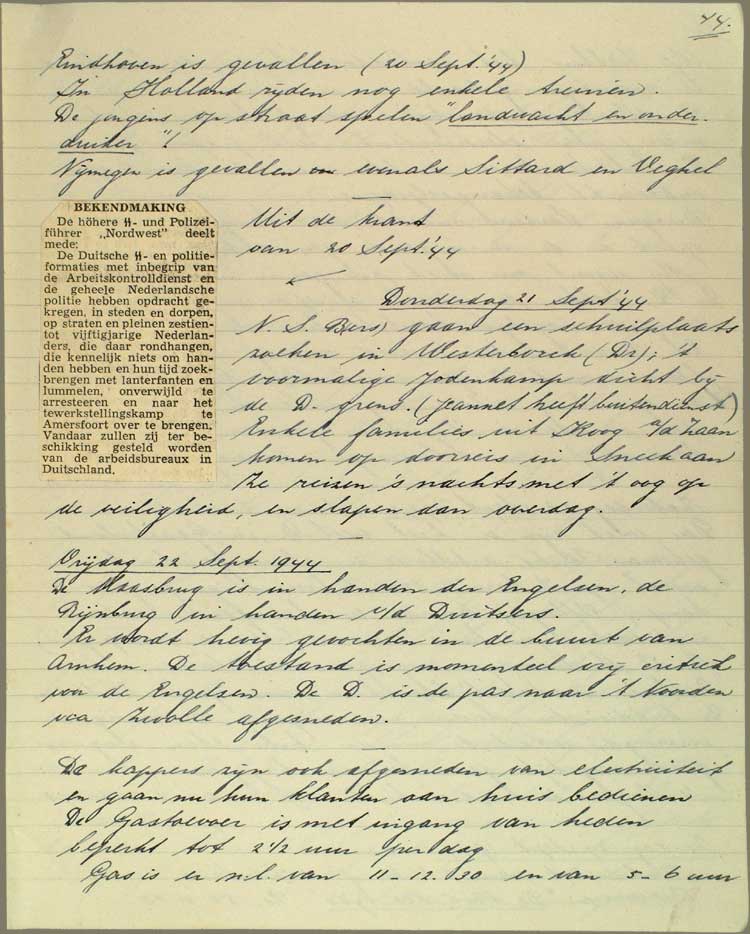 44.
Eindhoven is gevallen (20 Sept. '44)
In Holland rijden nog enkele treinen.
De jongens op straat spelen "landwacht en onder-
duiker"!
Nijmegen is gevallen evenals Sittard en Veghel
BEKENDMAKING
De höhere SS- und Polizei-
führer „Nordwest” deelt
mede:
De Duitsche SS- en politie-
formaties met inbegrip van
de Arbeitskontrolldienst en
de geheele Nederlandsche
politie hebben opdracht ge-
kregen, in steden en dorpen,
op straten en pleinen zestien-
tot vijftigjarige Nederlan-
ders, die daar rondhangen,
die kennelijk niets om han-
den hebben en hun tijd zoek-
brengen met lanterfanten en
lummelen, onverwijld te
arresteeren en naar het
tewerkstellingskamp te
Amersfoort over te brengen.
Vandaar zullen zij ter be-
schikking gesteld worden
van de arbeidsbureaux in
Duitschland.
Uit de krant
van 20 Sept. '44
Donderdag 21 Sept '44
N.S. gaan een schuilplaats
zoeken in Westerborck (Dr.); 't
voormalige Jodenkamp dicht bij
de D. grens. (Jeannet heeft buitendienst)
Enkele families uit Koog a/d Zaan
komen op doorreis in Sneek aan
Ze reizen 's nachts met 't oog op
de veiligheid, en slapen dan overdag.
Vrijdag 22 Sept. 1944
De Maasbrug is in handen der Engelsen, de
Rijnbrug in handen v/d Duitsers.
Er wordt hevig gevochten in de buurt van
Arnhem. De toestand is momenteel vrij critiek
voor de Engelsen. De D. is de pas naar 't Noorden
via Zwolle afgesneden.
De kappers zijn ook afgesneden van electriciteit
en gaan nu hun klanten aan huis bedienen
De Gastoevoer is met ingang van heden
beperkt tot 2 1/2 uur per dag
Gas is er n.l. van 11-12.30 en van 5-6 uur